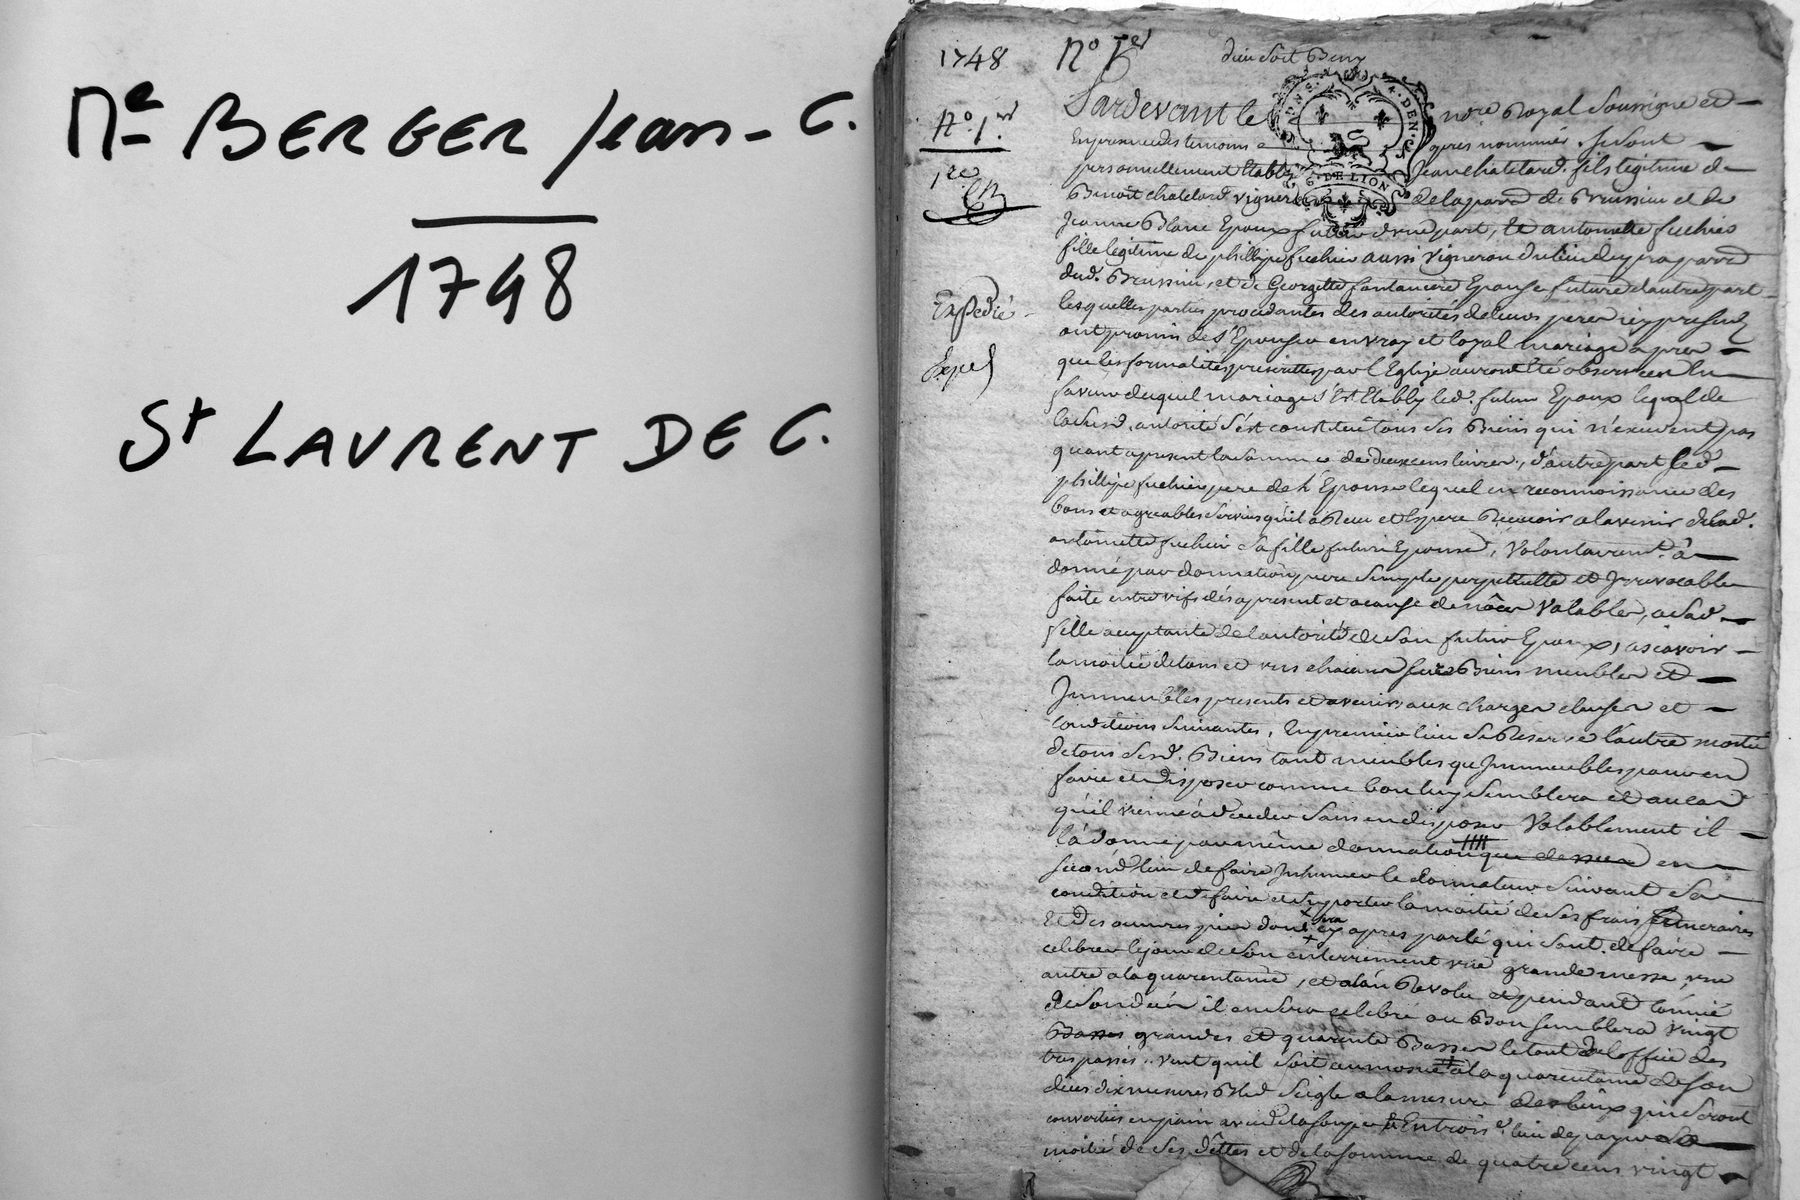 Me BERGER Jean-C.
1748
St LAURENT DE C.
1748
No 1er
dieu soit Beny
No. 1er
1re
Expedié
Expel
GEN. DE LION
Pardevant le nore Royal Soussigné et
En presence des temoins apres nommés. se sont
personnellement Etablis Jean chatelard. fils legitime de
Benoit chatelard vigneron de la parr. de Brussieu et de
Jeanne Blanc Epoux futur d'une part, et antoinette
fille legitime de phillipe aussi vigneron du lieu de parr
dud. Brussieu, et de Georgette Epouse future d'autre part
lesquelles parties procedantes des autorités de leurs peres icy presents
ont promis de s'Epouser en vray et loyal mariage apres
que les formalités prescrittes par l'Eglise auront été observées En
faveur duquel mariage s'est Etably led. futur Epoux lequel de
lasusd. autorité s'est constitué tous ses Biens qui n'excedent pas
quant apresent la somme de deux cens livres, d'autre part led
phillipe pere de l'Epouse lequel en reconnoissance des
bons et agreables services qu'il a Reçu et Espere Recevoir a lavenir de lad.
antoinette sa fille future Epouse, Volontairemt. â
donné par donnation pure simple perpetuelle et Irrevocable
faite entre vifs dés apresent et acause de nôces Valable, a sad
fille acceptante de l'autorité de son futur Epoux, ascavoir
la moitié de tous et uns chacuns ses Biens meubles et
Immeubles presents et avenir, aux charges clauses et
conditions suivantes, En premier lieu se Reserve l'autre moitié
de tous sesd. Biens tant meubles qu'Immeubles pour en
faire et disposer comme bon luy semblera et au cas
qu'il vienne à deceder sans en disposer Valablement il
la donne par même donnation que dessus en
second lieu de faire Inhumer le donnateur suivant sa
condition et de faire et suporter la moitié de ses frais funeraires
Et des œuvres pies dont sera cy apres parlé qui sont. de faire
celebrer le jour de son enterrement une grande messe, une
autre a la quarantaine, et a l'an Revolu et pendant l'année
de son deces il en sera celebré ou Bon semblera vingt
Basses grandes et quarante Basses le tout de l'office des
trepassés.. Veut quil soit aumosné a la quarantaine de son
deces dix mesures Bled Seigle a la mesure des lieux qui seront
convertis en pain avec de la soupe Et En troise. lieu de payer la
moitié de ses dêttes et de la somme de quatre cens vingt